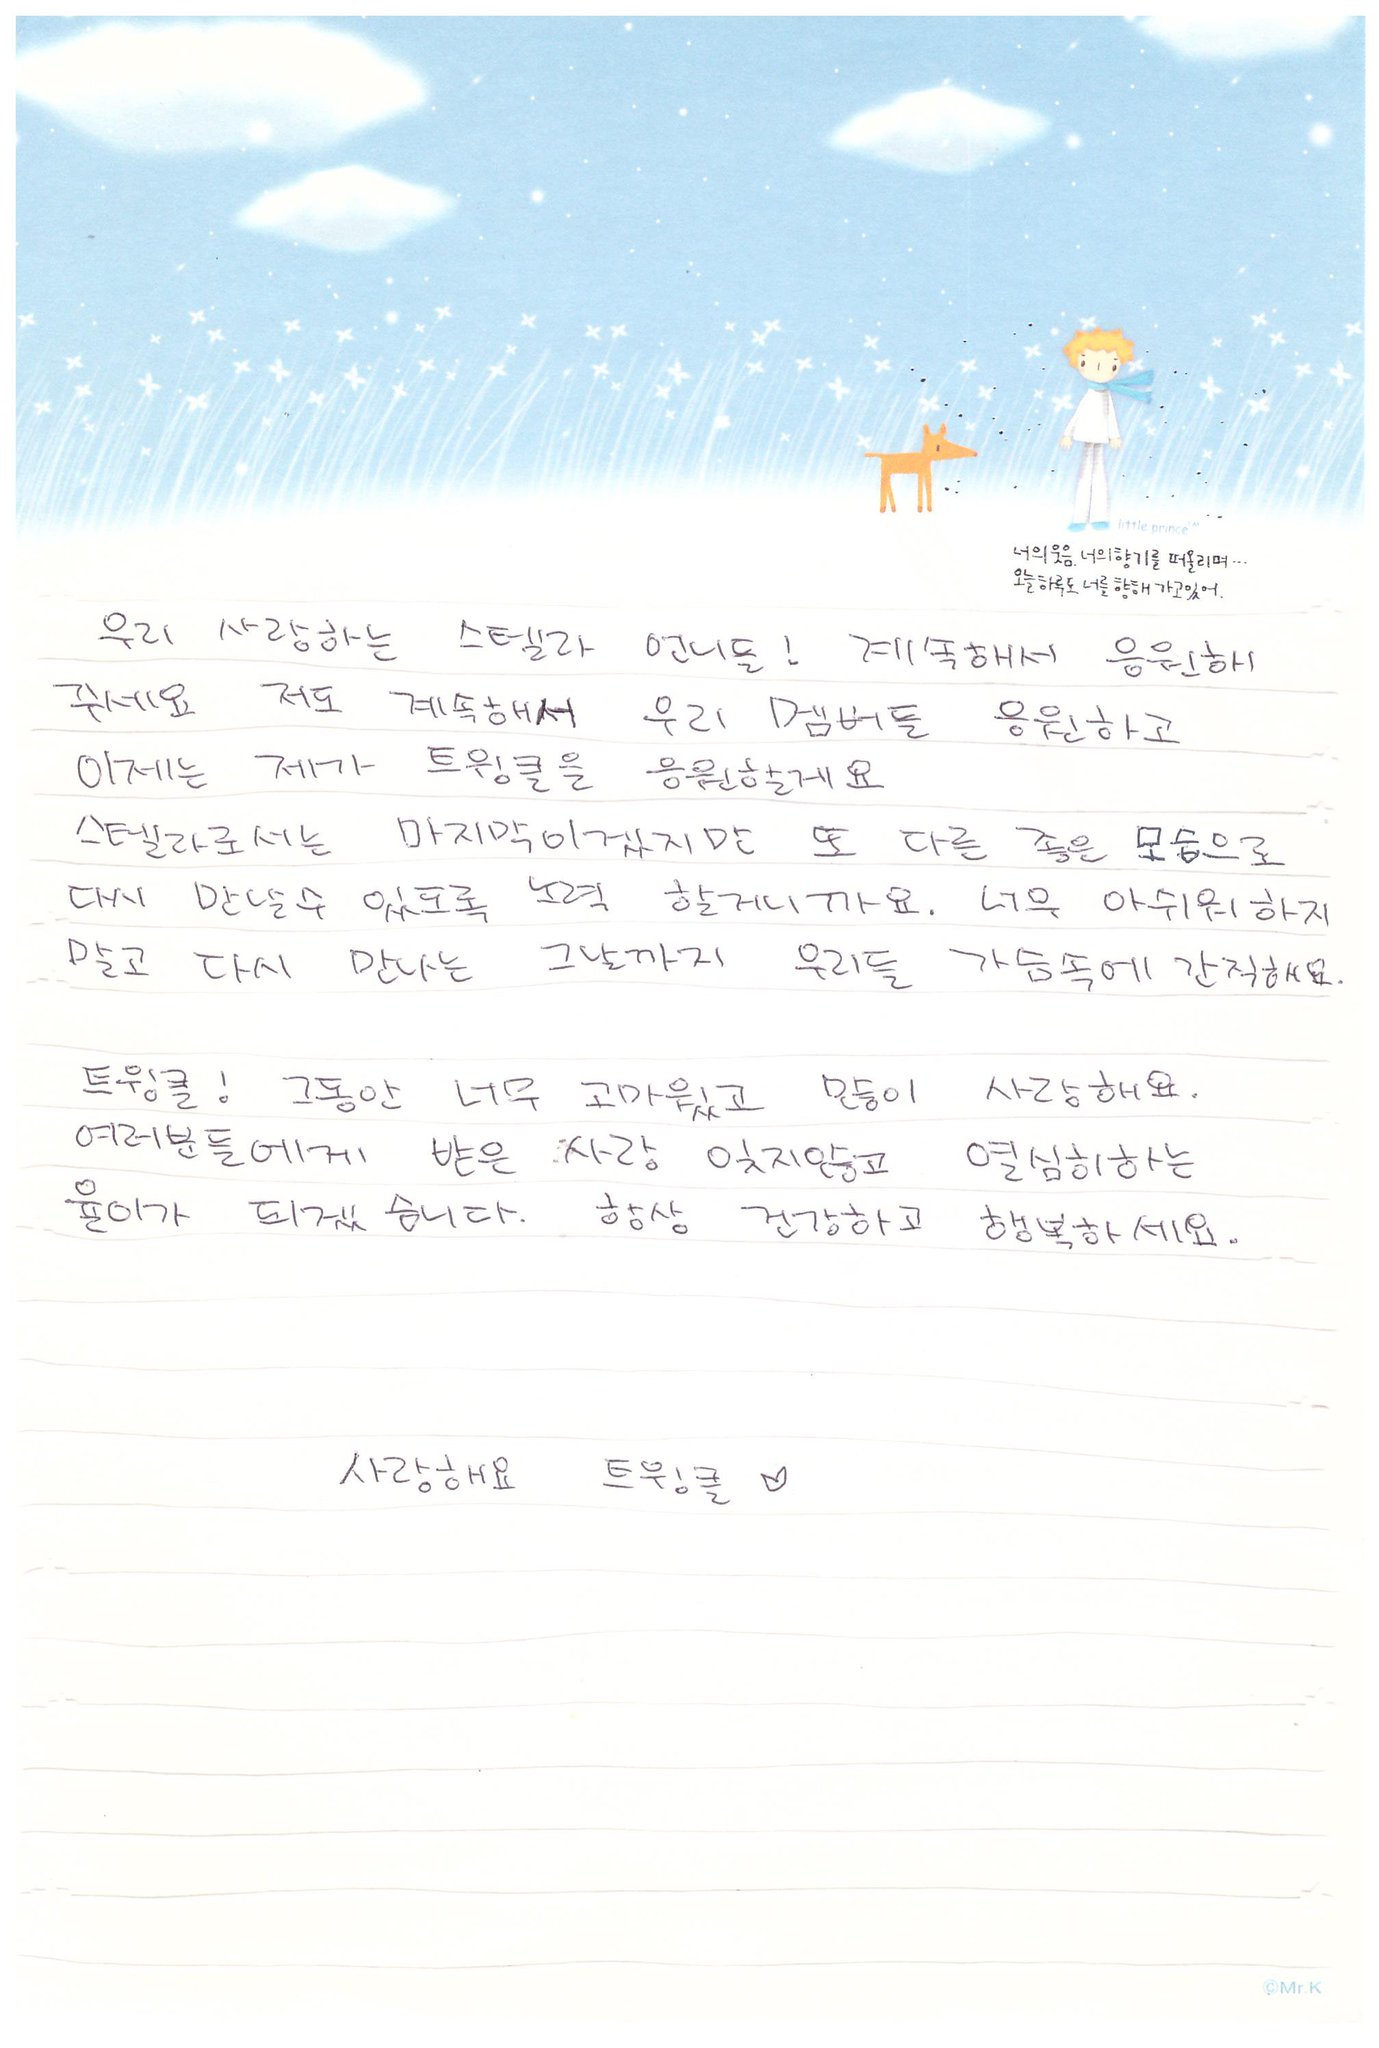 little prince™
너의 웃음, 너의 향기를 떠올리며...
오늘 하루도 너를 향해 가고있어.
우리 사랑하는 스텔라 언니들! 계속해서 응원해
주세요 저도 계속해서 우리 멤버들 응원하고
이제는 제가 트윙클을 응원할게요
스텔라로서는 마지막이겠지만 또 다른 좋은 모습으로
다시 만날수 있도록 노력 할거니까요. 너무 아쉬워하지
말고 다시 만나는 그날까지 우리들 가슴속에 간직해요.
트윙클! 그동안 너무 고마웠고 많이 사랑해요.
여러분들에게 받은 사랑 잊지않고 열심히하는
율이가 되겠습니다. 항상 건강하고 행복하세요.
사랑해요 트윙클 ♡
©Mr.K